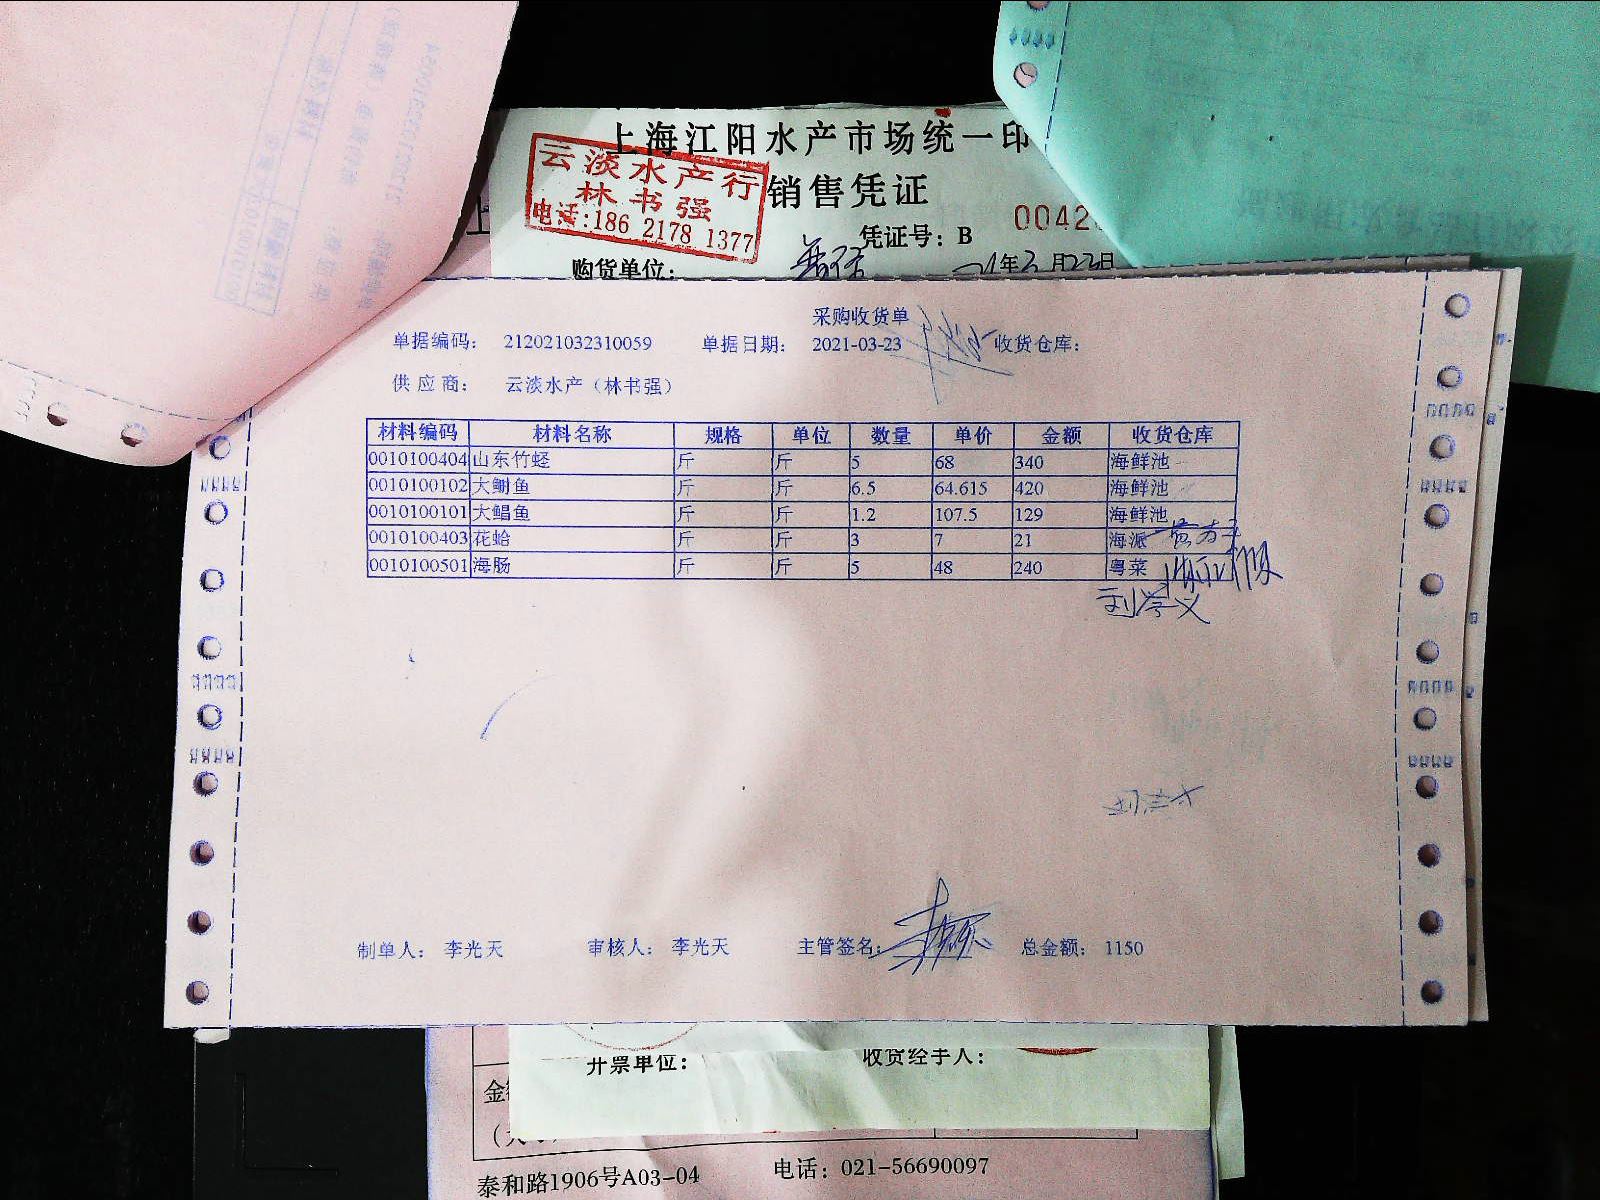 上海江阳水产市场统一印
云淡水产行
林书强
电话:186 2178 1377
销售凭证
凭证号：B 0042
购货单位：
年3月23日
采购收货单
单据编码： 212021032310059 单据日期： 2021-03-23 收货仓库：
供应商： 云淡水产（林书强）
材料编码 材料名称 规格 单位 数量 单价 金额 收货仓库
0010100404 山东竹蛏 斤 斤 5 68 340 海鲜池
0010100102 大鲥鱼 斤 斤 6.5 64.615 420 海鲜池
0010100101 大鲳鱼 斤 斤 1.2 107.5 129 海鲜池
0010100403 花蛤 斤 斤 3 7 21 海派
0010100501 海肠 斤 斤 5 48 240 粤菜
刘学义
制单人： 李光天 审核人： 李光天 主管签名： 总金额： 1150
开票单位： 收货经手人：
泰和路1906号A03-04 电话：021-56690097